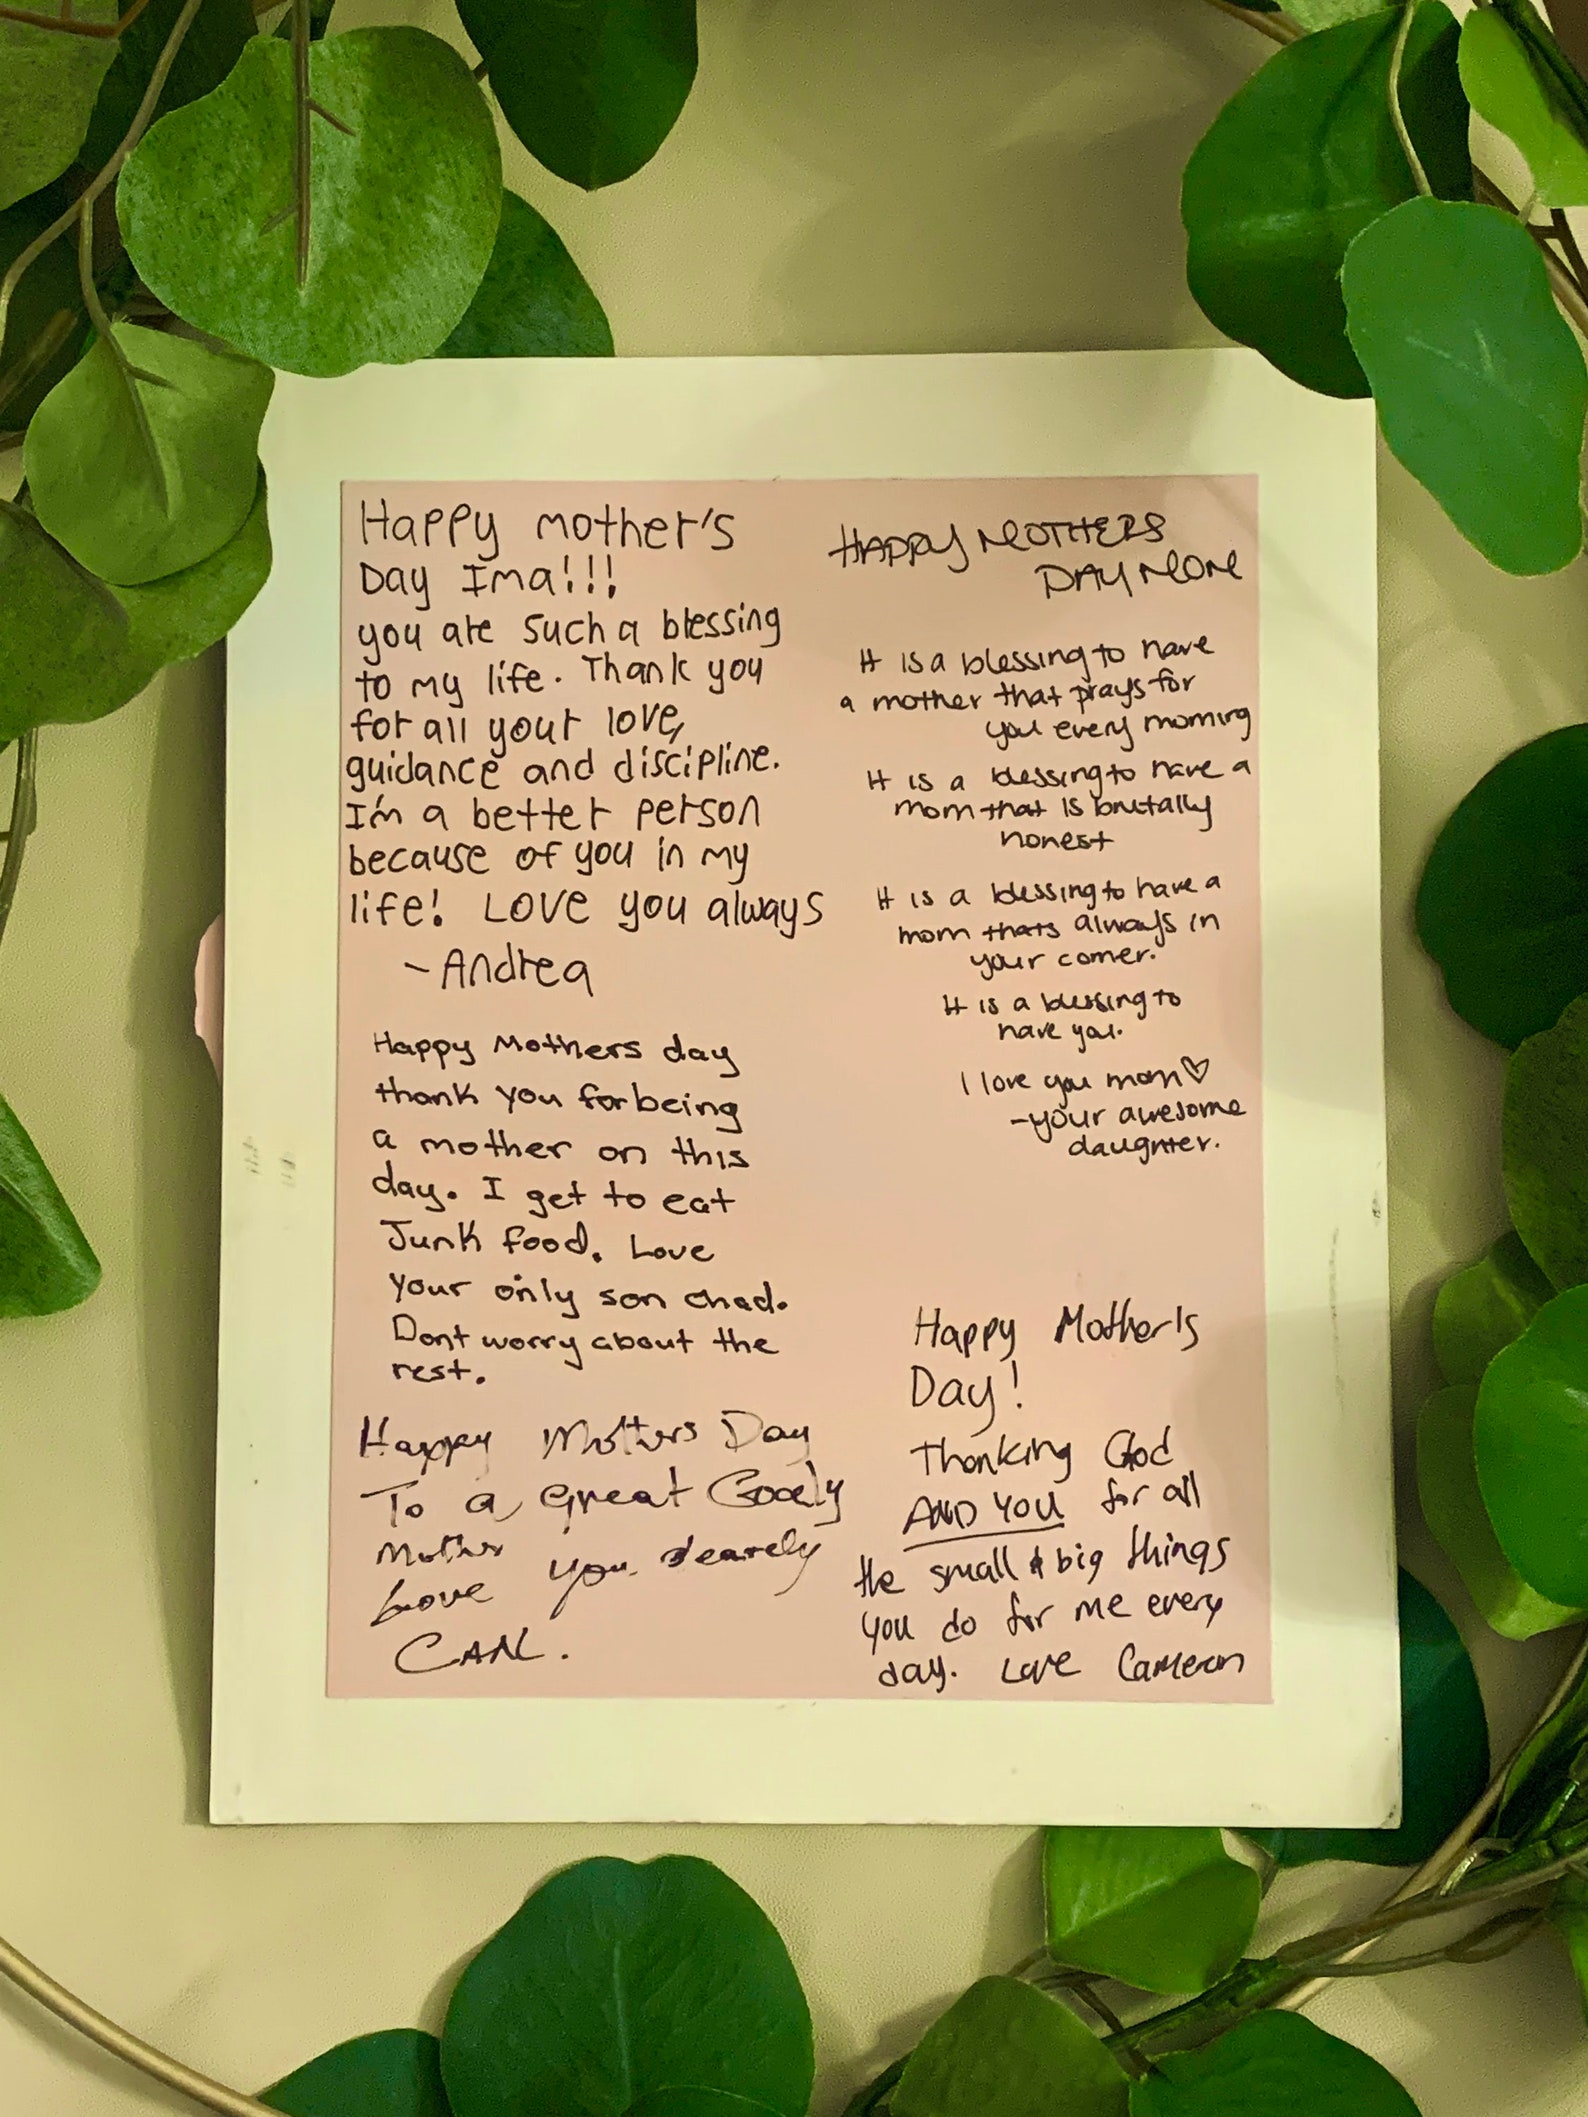 Happy mother's
Day Ima!!!
you are such a blessing
to my life. Thank you
for all your love,
guidance and discipline.
I'm a better person
because of you in my
life! LOVE you always
- Andrea
Happy Mothers day
thank you for being
a mother on this
day. I get to eat
Junk food. Love
your only son chad.
Dont worry about the
rest.
Happy Mothers Day
To a great Goodly
Mother
Love you dearely
CARL.
HAPPY MOTHERS
DAY MOM
It is a blessing to have
a mother that prays for
you every morning
It is a blessing to have a
mom that is brutally
honest
It is a blessing to have a
mom thats always in
your corner.
It is a blessing to
have you.
I love you mom♡
-your awesome
daughter.
Happy Mother's
Day!
Thanking God
AND YOU for all
the small & big things
you do for me every
day. Love Cameron